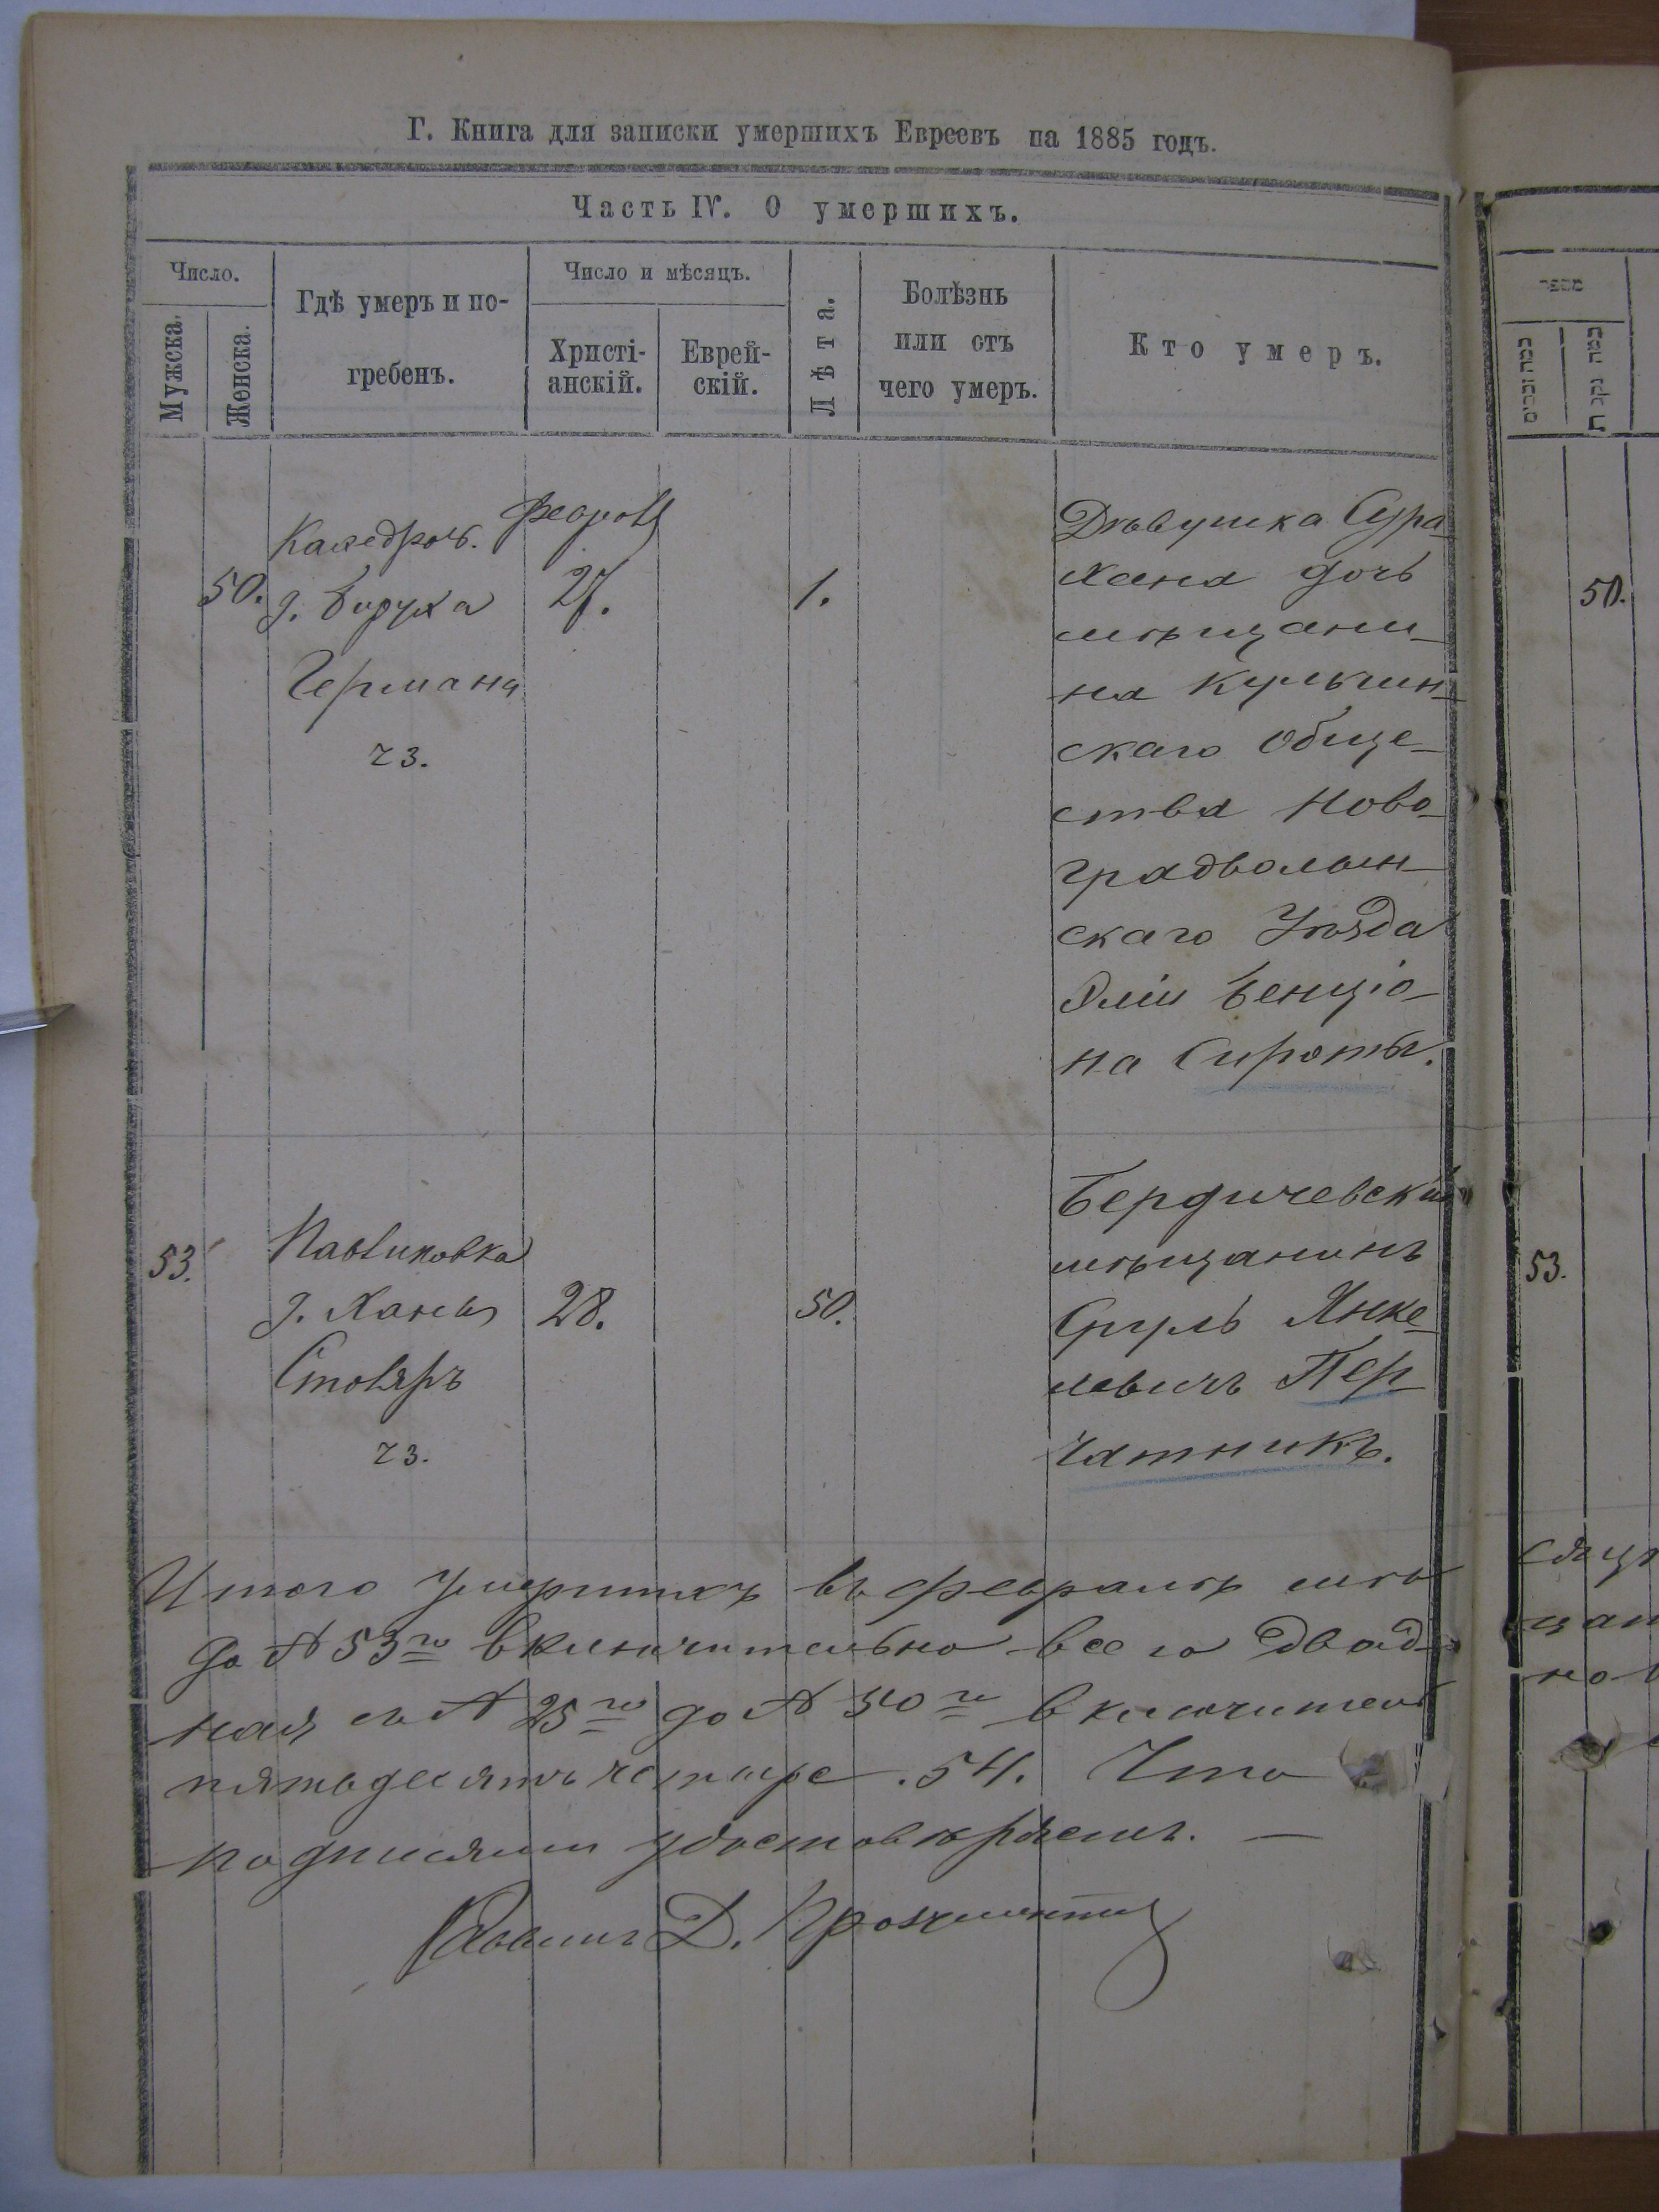 Г. Книга для записки умершихъ Евреевъ на 1885 годъ.
Часть IV. О умершихъ.
Число.
Мужска.
Женска.
Гдѣ умеръ и по-
гребенъ.
Число и мѣсяцъ.
Христі-
анскій.
Еврей-
скій.
Лѣта.
Болѣзнь
или отъ
чего умеръ.
Кто умеръ.
50.
д. Баруха
Германа
23.
27.
1.
Дѣвушка Сура
Хана дочь
мѣщани-
на Кульчин-
скаго Обще-
ства Ново-
градволын-
скаго Уѣзда
Бенціо-
на Сироты.
50.
53.
Павликовка
д. Ханы
Столяръ
23.
28.
50.
Бердичевскій
мѣщанинъ
Сруль Янке-
левичъ Пер-
чатникъ.
53.
Итого умершихъ въ февралѣ мѣс
до № 53го включительно всего двад-
ная съ № 25го до № 50го включитель
пятьдесятъ четыре .54. Что
подписями удостовѣряемъ. —
Раввинъ Д.